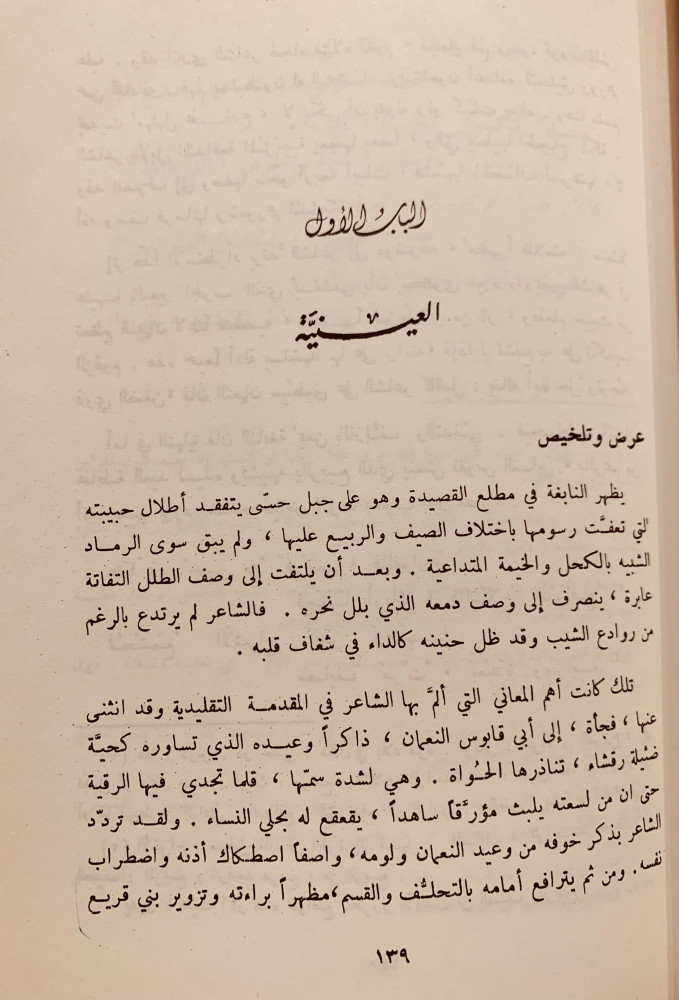 الباب الأول
العينيَّة
عرض وتلخيص
يظهر النابغة في مطلع القصيدة وهو على جبل حسّى يتفقد أطلال حبيبته
التي تعفّت رسومها باختلاف الصيف والربيع عليها ، ولم يبق سوى الرماد
الشبيه بالكحل والخيمة المتداعية . وبعد أن يلتفت إلى وصف الطلل التفاتة
عابرة ، ينصرف إلى وصف دمعه الذي بلل نحره . فالشاعر لم يرتدع بالرغم
من روادع الشيب وقد ظل حنينه كالداء في شغاف قلبه .
تلك كانت أهم المعاني التي ألمَّ بها الشاعر في المقدمة التقليدية وقد انثنى
عنها ، فجأة ، إلى أبي قابوس النعمان ، ذاكراً وعيده الذي تساوره كحيَّة
ضئيلة رقشاء ، تناذرها الحُواة . وهي لشدة سمّها ، قلما تجدي فيها الرقية
حتى ان من لسعته يلبث مؤرَّقاً ساهداً ، يقعقع له بحلي النساء . ولقد تردّد
الشاعر بذكر خوفه من وعيد النعمان ولومه، واصفاً اصطكاك أذنه واضطراب
نفسه. ومن ثم يترافع أمامه بالتحلُّف والقسم،مظهراً براءته وتزوير بني قريع
١٣٩